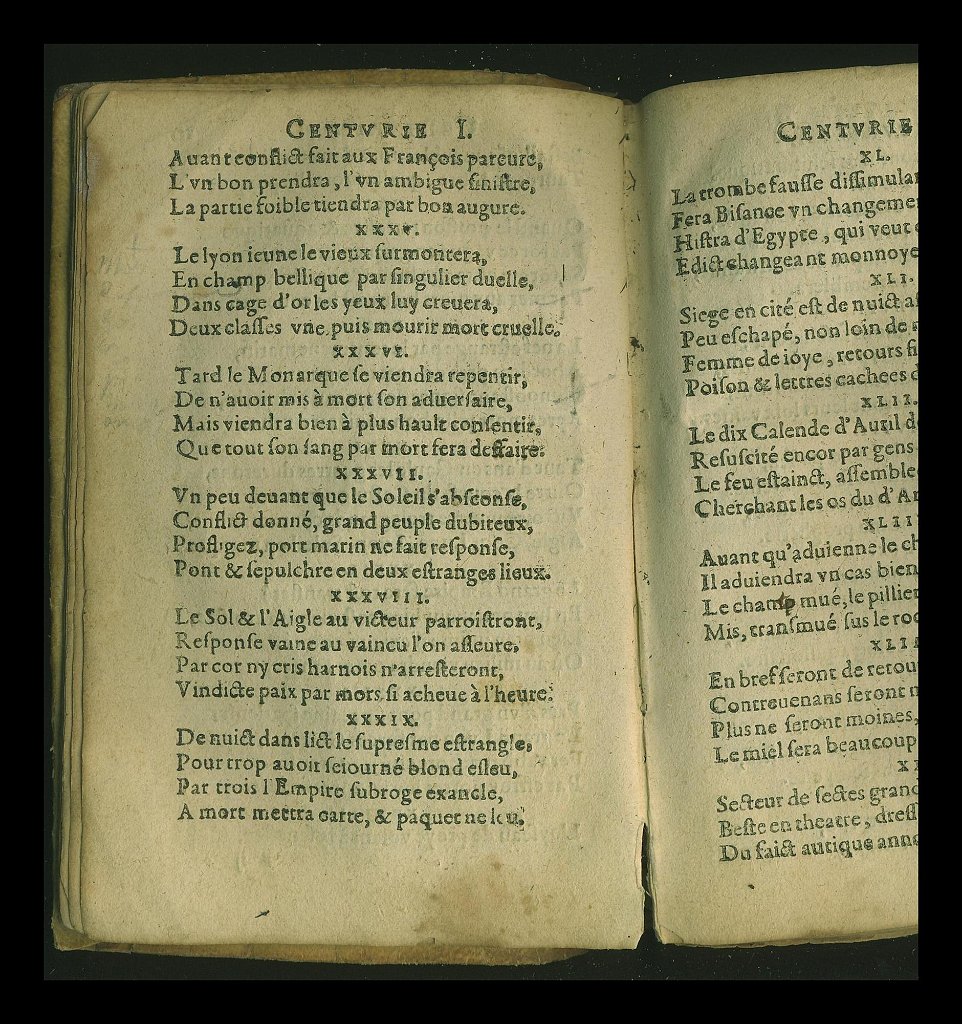 CENTVRIE I.
Auant conflict fait aux François pareure,
L'vn bon prendra, l'vn ambigue ſiniſtre,
La partie foible tiendra par bon augure.
XXXV.
Le lyon ieune le vieux ſurmontera,
En champ bellique par ſingulier duelle,
Dans cage d'or les yeux luy creuera,
Deux claſſes vne, puis mourir mort cruelle.
XXXVI.
Tard le Monarque ſe viendra repentir,
De n'auoir mis à mort ſon aduerſaire,
Mais viendra bien à plus hault conſentir,
Que tout ſon ſang par mort fera deffaire.
XXXVII.
Vn peu deuant que le Soleil s'abſconſe,
Conflict donné, grand peuple dubiteux,
Profligez, port marin ne fait reſponſe,
Pont & ſepulchre en deux eſtranges lieux.
XXXVIII.
Le Sol & l'Aigle au victeur parroiſtront,
Reſponſe vaine au vaincu l'on aſſeure,
Par cor ny cris harnois n'arreſteront,
Vindicte paix par mors ſi acheue à l'heure.
XXXIX.
De nuict dans lict le ſupreſme eſtrangle,
Pour trop auoir ſeiourné blond eſleu,
Par trois l'Empire ſubroge exancle,
A mort mettra carte, & paquet ne leu.
CENTVRIE
XL.
La trombe fauſſe diſſimulan
Fera Biſance vn changeme
Hiſtra d'Egypte, qui veut
Edict changeant monnoye
XLI.
Siege en cité eſt de nuict aſ
Peu eſchapé, non loin de
Femme de ioye, retours fi
Poiſon & lettres cachees
XLII.
Le dix Calende d'Auril d
Reſuſcité encor par gens
Le feu eſtainct, aſſemble
Cherchant les os du d'Am
XLIII
Auant qu'aduienne le ch
Il aduiendra vn cas bien
Le champ mué, le pillier
Mis, tranſmué ſus le roc
XLII
En bref ſeront de retou
Contreuenans ſeront
Plus ne ſeront moines,
Le miel ſera beaucoup
XX
Secteur de ſectes grand
Beſte en theatre, dreſſ
Du faict autique anno